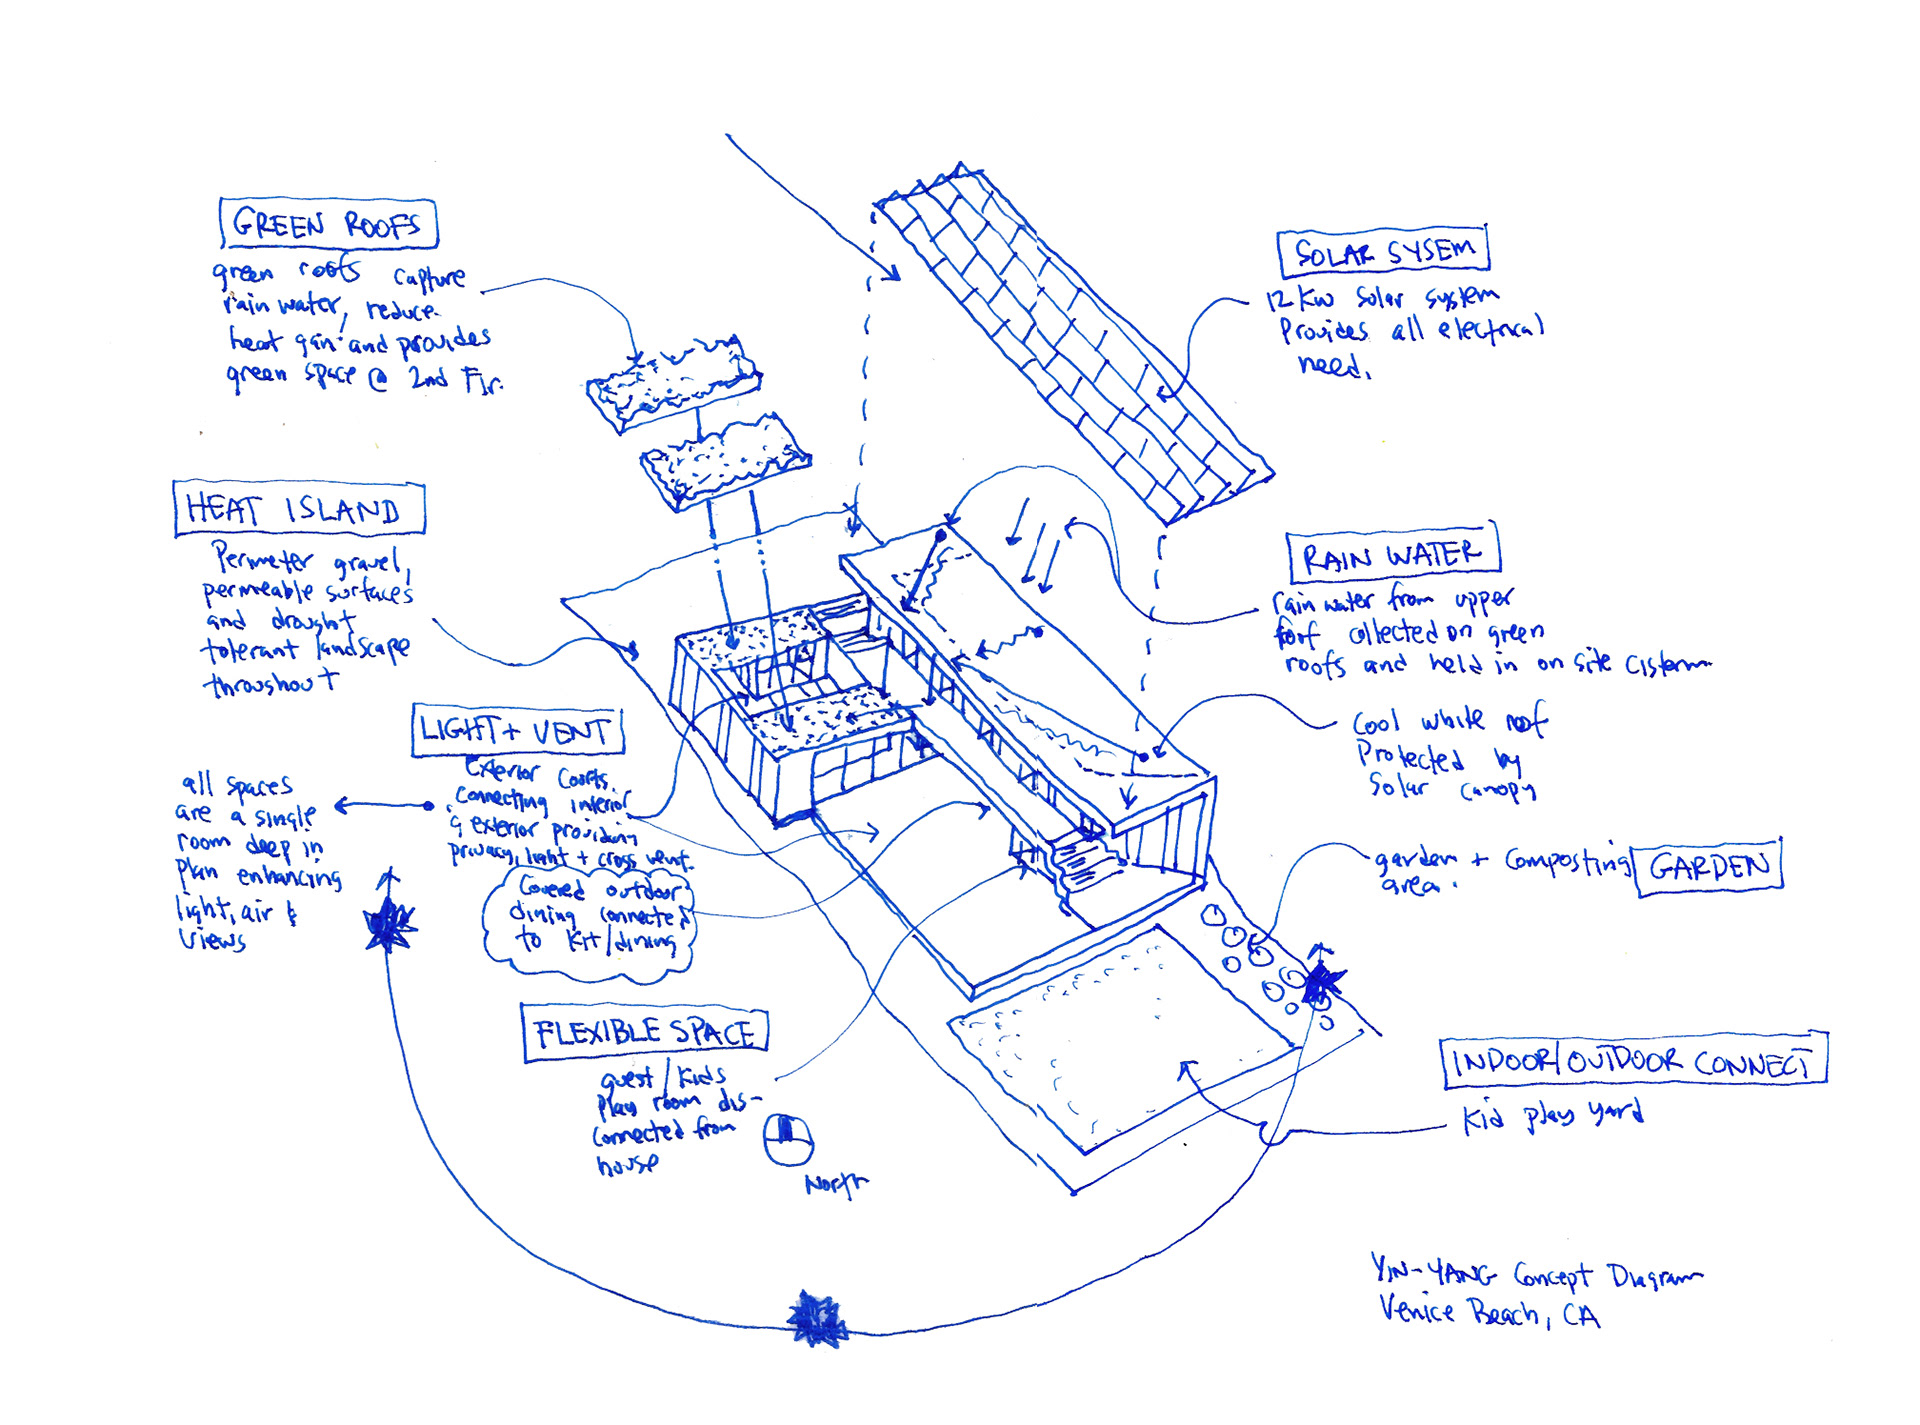 GREEN ROOFS
green roofs capture
rain water, reduce
heat gain and provides
green space @ 2nd Flr.
HEAT ISLAND
Perimeter gravel,
permeable surfaces
and drought
tolerant landscape
throughout
LIGHT + VENT
Exterior Courts
connecting interior
& exterior providing
privacy, light + cross vent.
all spaces
are a single
room deep in
plan enhancing
light, air &
views
Covered outdoor
dining connected
to Kit/dining
FLEXIBLE SPACE
guest / kids
play room dis-
connected from
house
North
SOLAR SYSEM
12 KW Solar system
Provides all electrical
need.
RAIN WATER
rain water from upper
roof collected on green
roofs and held in on site cistern
Cool white roof
Protected by
Solar canopy
garden + composting
area.
GARDEN
INDOOR/OUTDOOR CONNECT
Kid play yard
YIN-YANG Concept Diagram
Venice Beach, CA